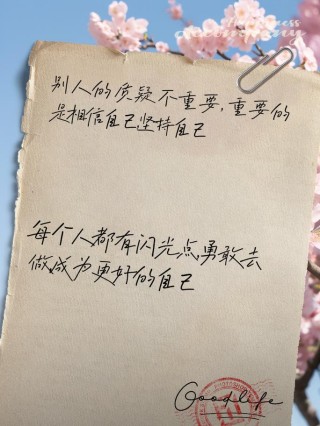 别人的质疑不重要,重要的
是相信自己坚持自己
每个人都有闪光点勇敢去
做成为更好的自己
Goodlife